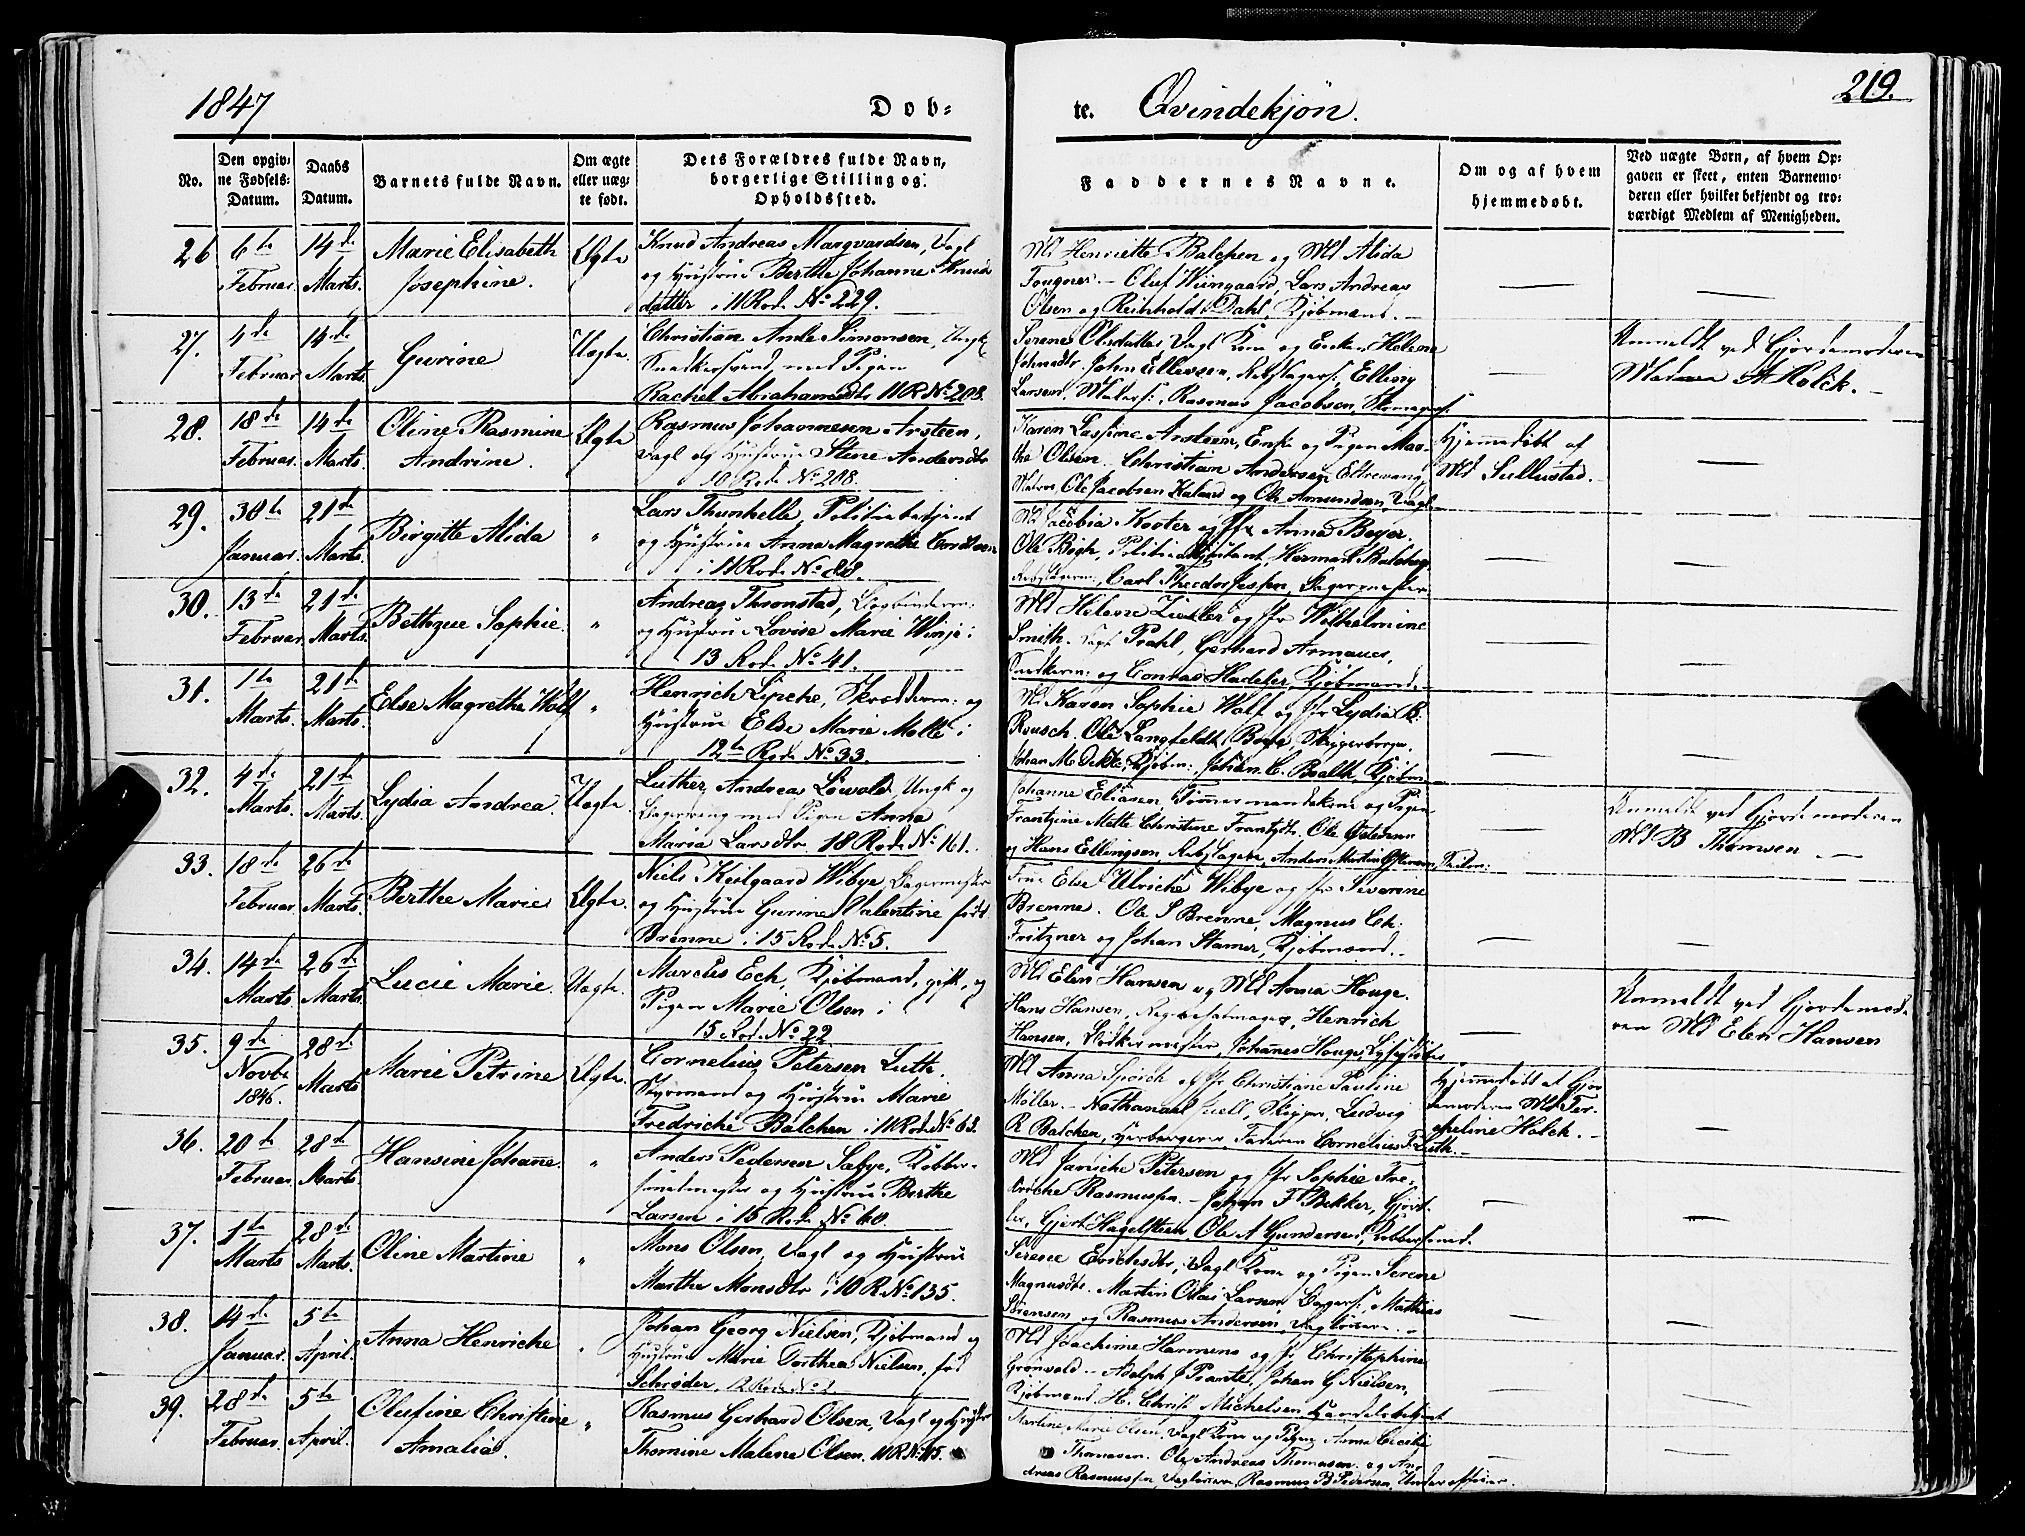 1847
Døb-
te. Qvindekjøn.
219.
No.
Den opgiv-
ne Fødsels-
Datum.
Daabs
Datum.
Barnets fulde Navn.
Om ægte
eller uæg-
te født.
Dets Forældres fulde Navn,
borgerlige Stilling og
Opholdssted.
Faddernes Navne.
Om og af hvem
hjemmedøbt.
Ved uægte Børn, af hvem Op-
gaven er skeet, enten Barnemo-
deren eller hvilket bekjendt og tro-
værdigt Medlem af Menigheden.
26
6te
Februar.
14de
Marts.
Marie Elisabeth
Josephine.
Ægte
Knud Andreas Marqvardsen, Vagt
og Hustrue Berthe Johanne Knuds
datter i 11 Rode No 229.
Md Henriette Balchen og Md Alida
Fougner. - Oluf Wiingaard, Lars Andreas
Olsen og Reinhold Dahl, Kjøbmænd. -
27.
4de
Februar
14de
Marts.
Gurine
Uægte.
Christian Simonsen, Ungk.
Snedkersvend, med Pigen
Rachel Abrahamsdtr 11 R No 208.
Serene Olsdatter Vagt Kone og Enken Helene
Johnsdtr. John Ellevsen, Rebslagers., Elling
Larsen, Malers., Rasmus Jacobsen, Skomagers.
Anmeldt ved Gjordemoderen
Madam A Holck. -
28.
18de
Februar.
14de
Marts.
Oline Rasmine
Andrine.
Ægte
Rasmus Johannesen Arsteen,
Vagt og Hustrue Stene Andersdtr
10 Rode No 208.
Karen Arsteen, Enke og Pigen Mar-
the Olsen. Christian Andersen
Matros, Ole Jacobsen og Ole Amundsen, Vagt.
Hjemmedøbt af
Md Sellustad.
29.
30te
Januar.
21de
Marts.
Birgitte Alida
"
Lars Thunhelle, Politiebetjent
og Hustrue Anna Magrethe
i 11 Rode No 88.
Md Jacobia og Jfr Anna Beyer.
Ole Bøgh, Herman
Rebslagerm., Carl Theodor Jespen, Bagermester
30.
13de
Februar.
21de
Marts.
Bethzue Sophie.
"
Andreas Thronstad, Bogbinderm.
og Hustrue Lovise Marie Winje i
13 Rode No 41.
Md Helene og Jfr Wilhelmine
Smith. Prahl, Gerhard Armauer,
Snedkerm. og Conrad Kjøbmænd.
31.
1te
Marts.
21de
Marts.
Else Magrethe Wolf
"
Henrich Skrædderm. og
Hustrue Else Marie Molle i
12te Rode No 33.
Md Karen Sophie Wolf og Jfr Lydia B.
Reusch. Ole Langfeldt
Johan M Kjøbm. Kjøbm
32.
4de
Marts.
21de
Marts.
Lydia Andrea.
Uægte
Luther Andreas Løwold, Ungk og
Bagersveng med Pigen Anna
Maria Larsdtr 18 Rode No 161.
Johanne Eliasen, Tømmermandskone og Pigen
Frantzine Mette Christine Frantzdtr. Ole
og Hans Ellingsen, Rebslagere, Anders Martin
Anmeldt ved Gjordemoderen
Md B Thomsen -
33.
18de
Februar
26de
Marts.
Berthe Marie
Ægte.
Niels Keilgaard Wibye, Bagermester
og Hustrue Gurine Valentine født
Brenne i 15 Rode No 5.
Frue Else Ulriche Wibye og Jfr Severine
Brenne. Ole S Brenne, Magnus Ch:
Fritzner og Johan Stamer, Kjøbmænd. -
34.
14de
Marts.
26de
Marts.
Lucie Marie.
Uægte.
Marcus Eck, Kjøbmand, gift, og
Pigen Marie Olsen i
15 Rode No 22.
Md Elen Hansen og Md Anna Houge.
Hans Hansen, Henrich
Hansen, Blokkemester, Johannes Houge,
Anmeldt ved Gjordemode-
ren Md Elen Hansen
35.
9de
Novbr
1846.
28de
Marts
Marie Petrine
Ægte.
Cornelius Petersen Luth,
Styrmand og Hustrue Marie
Fredriche Balchen i 11 Rode No 63.
Md Anna og Jfr Christiane Pauline
Møller. - Nathanael Juell, Skipper, Ludvig
R Balchen, Faderen Cornelius P Luth. -
Hjemmedøbt af Gjor
demoderen Md
Holck. -
36.
20de
Februar.
28de
Marts.
Hansine Johanne.
"
Anders Pedersen Sæbye, Kobber-
smedmester og Hustrue Berthe
Larsen i 15 Rode No 60.
Md Janiche Petersen og Jfr Sophie Fre-
driche Rasmussen. - Johan F Bekker,
Gjert Hagelsteen Ole A Gundersen, Kobbersmed.
37.
1te
Marts
28de
Marts.
Oline Martine
"
Mons Olsen, Vagt og Hustrue
Marthe Monsdtr i 10 R No 135.
Serene Erichsdtr, Vagt Kone og Pigen Serene
Magnusdtr. Martin Olai Larsen Mathias
Sørensen, og Rasmus Andersen,
38.
14de
Januar.
5te
April.
Anna Henriche
"
Johan Georg Nielsen, Kjøbmand og
Hustrue Marie Dorthea Nielsen, fød
Schrøder, 12 Rode No 2
Md Joachime Harmens og Jfr Christophine
Grønvold - Adolph J Johan G Nielsen,
Kjøbmænd, H. Christ Michelsen Handelsbetjent
39.
28de
Februar.
5te
April.
Olufine Christine
Amalia.
"
Rasmus Gerhard Olsen, Vagt og Hustr
Thomine Malene Olsen. 11 R No 115.
Martine Marie Olsen, Vagt Kone og Pigen Anna Cecilie
Thomasen. Ole Andreas Thomasen og An-
dreas Rasmussen, Rasmus B Pedersen, Underofficier.